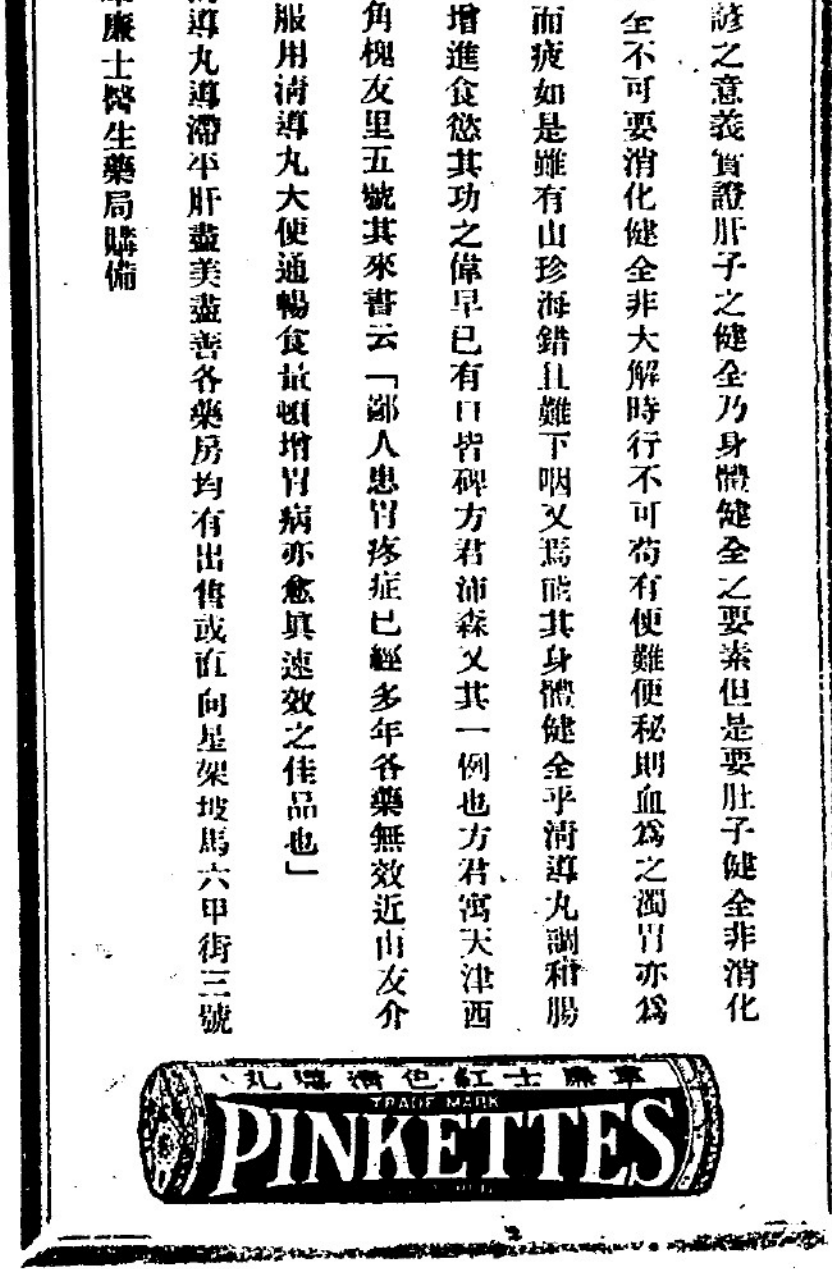 諺之意義實證肝子之健全乃身體健全之要素但是要肚子健全非消化
全不可要消化健全非大解時行不可苟有便難便秘則血爲之濁胃亦爲
而疲如是雖有山珍海錯且難下咽又焉能其身體健全乎清導丸調和腸
增進食慾其功之偉早已有口皆碑方君沛森又其一例也方君寓天津西
角槐友里五號其來書云「鄙人患胃疼症已經多年各藥無效近由友介
服用清導丸大便通暢食量頓增胃病亦愈眞速效之佳品也」
導丸導滯平肝盡美盡善各藥房均有出售或直向星架坡馬六甲街三號
廉士醫生藥局購備
韋廉士紅色清導丸
TRADE MARK
PINKETTES